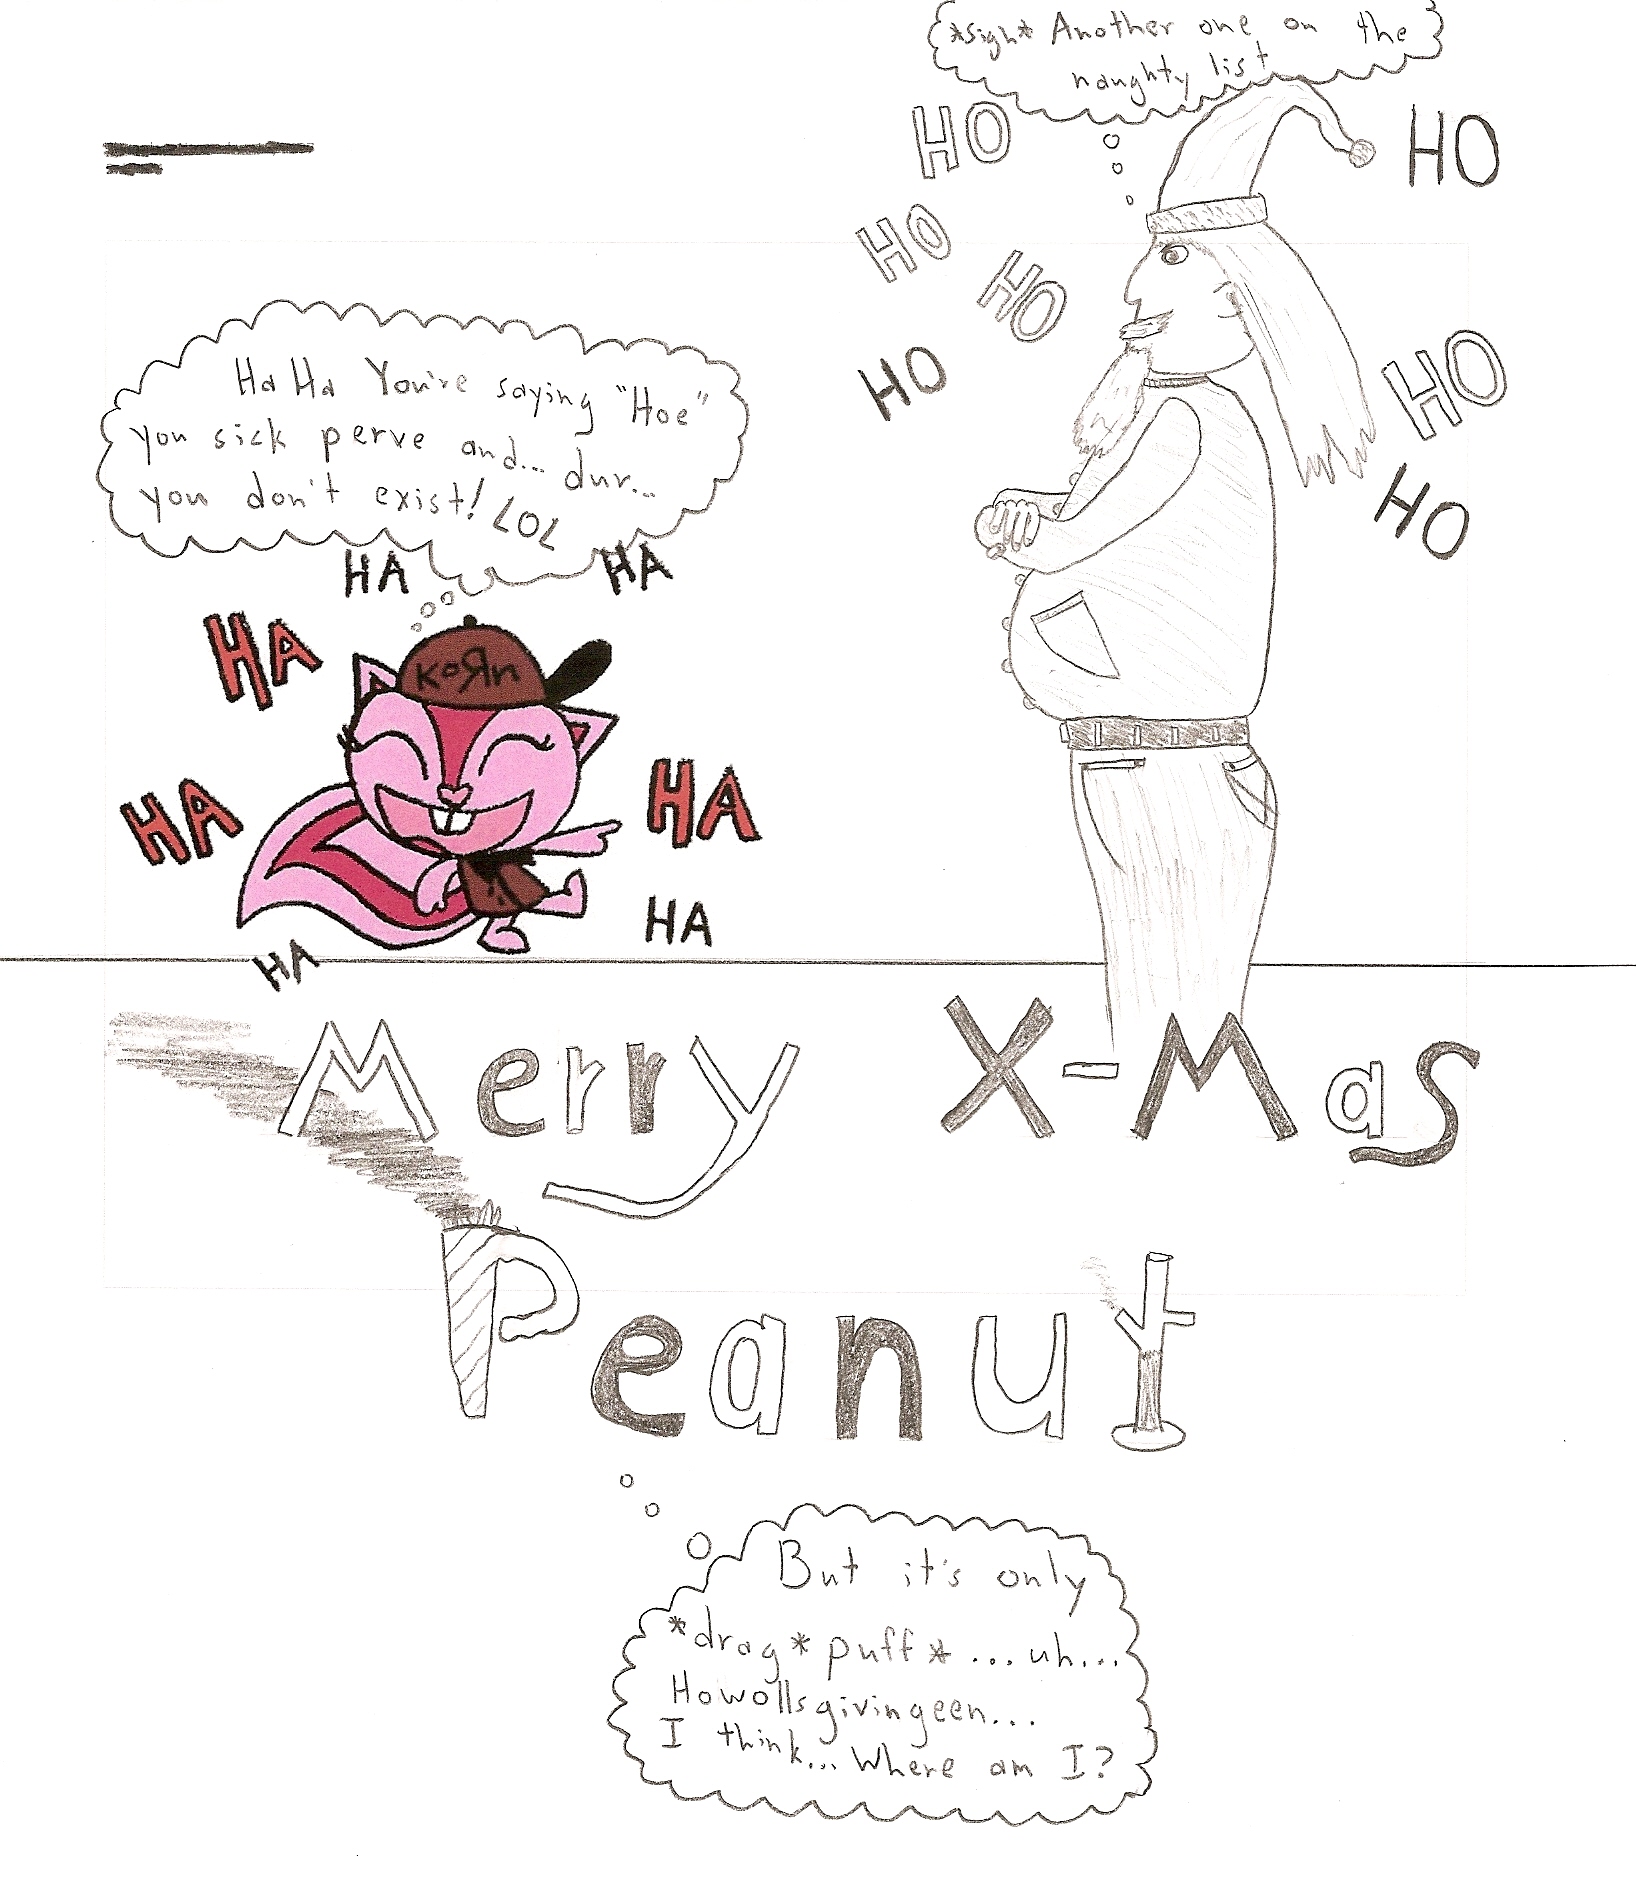 *Sigh* Another one on the
naughty list
HO HO
HO
HO
HO
HO
HO
Ha Ha You've saying "Hoe"
you sick perve and... dur...
you don't exist! LOL
HA HA
HA
KoЯn
HA HA
HA
HA
Merry X-Mas
Peanut
But it's only
*drag* puff* ...uh...
Howollsgivingeen...
I think... Where am I?